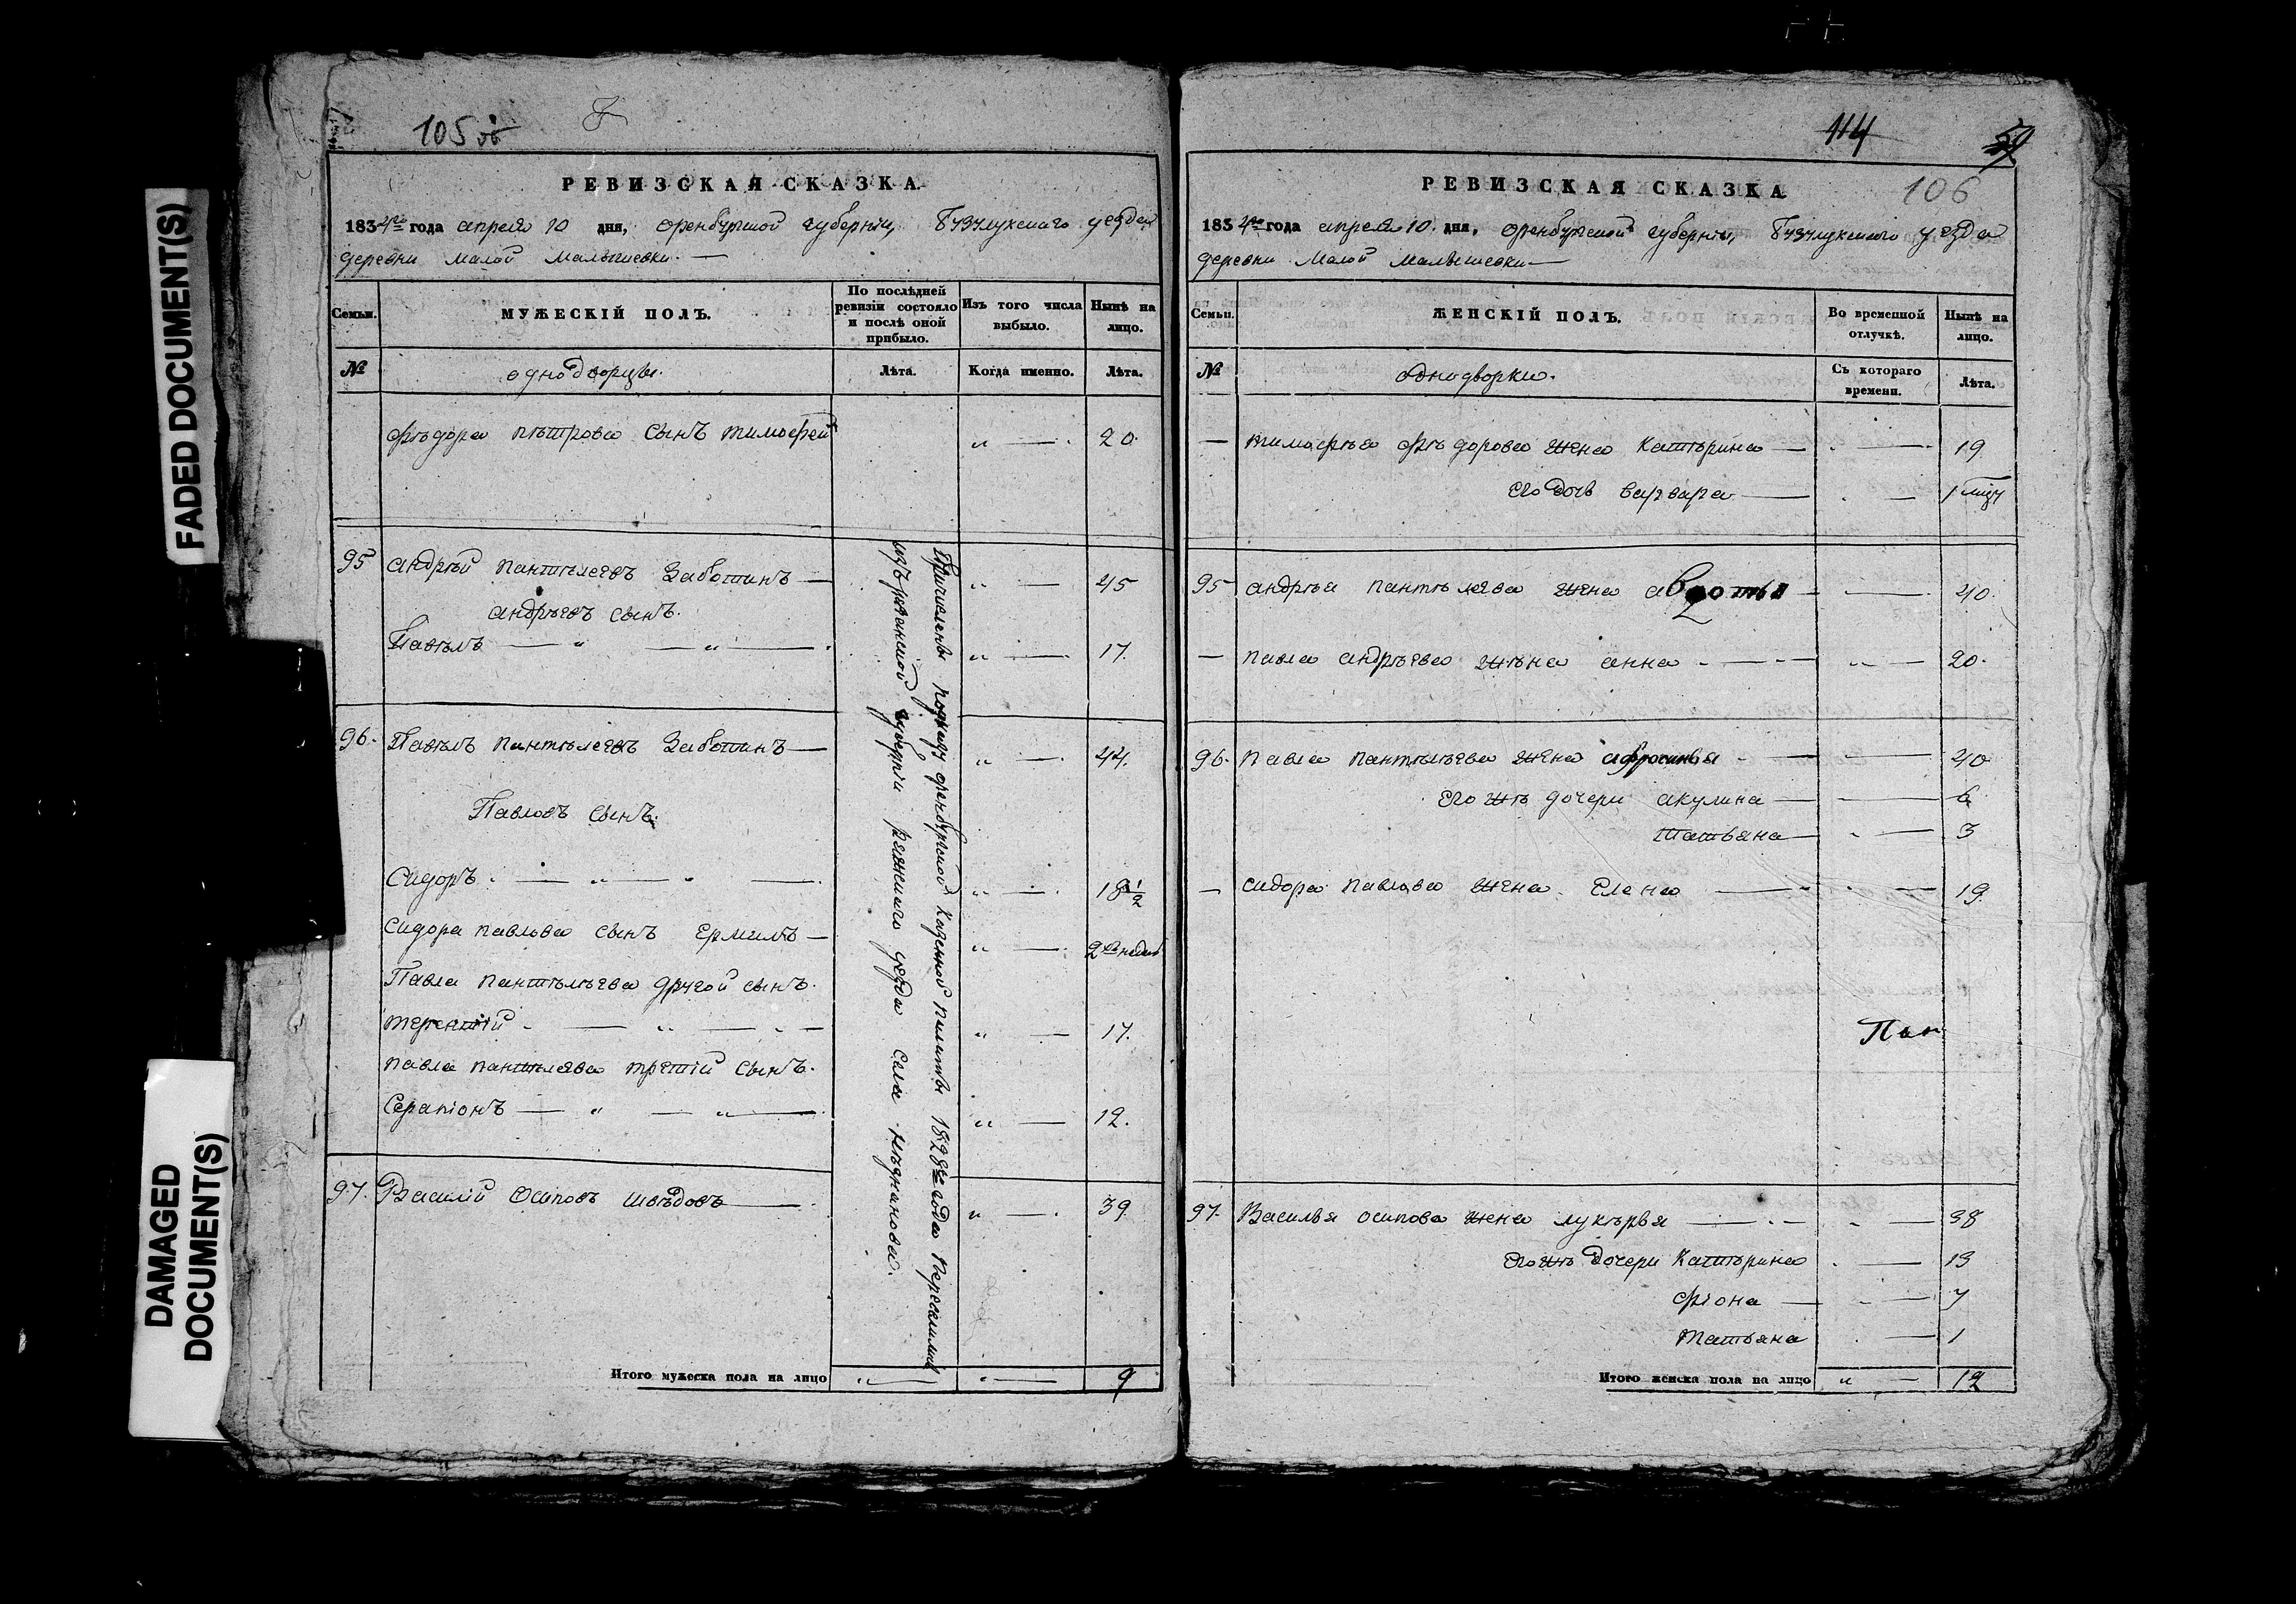 FADED DOCUMENT(S)
DAMAGED
DOCUMENT(S)
105 об
РЕВИЗСКАЯ СКАЗКА.
1834го года апреля 10 дня, оренбургской губернiи, Бузулукскаго уезда
деревни малой малышевки.
Семьи.
МУЖЕСКIЙ ПОЛЪ.
По послѣдней ревизiи состояло и послѣ оной прибыло.
Изъ того числа выбыло.
Нынѣ на лицо.
№
однодворцы.
Лѣта.
Когда именно.
Лѣта.
фѣдора пѣтрова сынъ тимофей „ — 20.
95 андрѣй пантѣлеевъ Заботинъ — „ — 45
андрѣевъ сынъ.
Павѣлъ — „ — „ — „ — 17.
96. Павѣлъ пантѣлеевъ Заботинъ — „ — 44.
Павловъ сынъ.
Сидоръ — „ — „ — „ — 18 1/2
Сидора павлова сынъ Ермилъ — „ — 2
Павла пантѣлѣева другой сынъ.
терентiй — „ — „ — „ — 17.
павла пантѣлеева третiй сынъ.
Серапiонъ — „ — „ — „ — 12.
97. Василiй Осиповъ швѣдовъ — „ — 39
Причислены по указу оренбургской казенной палаты 1828го года Переселились
изъ рязанской губернiи ряжскаго уезда села
Итого мужеска пола на лицо „ — „ — 9
114
59
106
РЕВИЗСКАЯ СКАЗКА
1834го года апреля 10. дня, оренбургской губернiи, Бузулукскаго уезда
деревни Малой Малышевки —
Семьи.
ЖЕНСКIЙ ПОЛЪ.
Во временной отлучкѣ.
Нынѣ на лицо.
№
однодворки.
Съ котораго времени.
Лѣта.
— тимофѣя фѣдорова жена катѣрина — „ — 19
его дочь варвара — „ — 1
95 андрѣя пантѣлеева жена авдотья — „ — 40.
— павла андрѣева жѣна анна — „ — 20.
96. павла пантѣлѣева жена афросинья — „ — 40
его жъ дочери акулина — 6
татьяна — „ — 3
— сидора павлова жена Елена — „ — 19
97. Василья осипова жена лукѣрья — „ — 38
его жъ дочери катѣрина — „ — 13
фiона — „ — 7
татьяна — „ — 1
Итого женска пола на лицо „ — 12